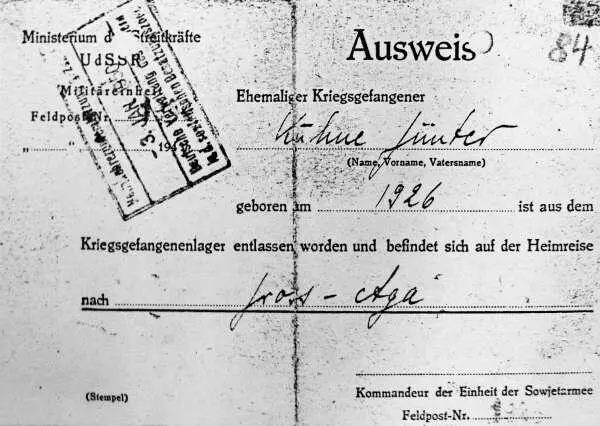 Ministerium d Streitkräfte
UdSSR
Militäreinheit
Feldpost-Nr.
„ “ 194
3. JAN. 1950
Ausweis
84
Ehemaliger Kriegsgefangener
Kühne Günter
(Name, Vorname, Vatersname)
geboren am 1926 ist aus dem
Kriegsgefangenenlager entlassen worden und befindet sich auf der Heimreise
nach Gross-Aga
(Stempel)
Kommandeur der Einheit der Sowjetarmee
Feldpost-Nr.